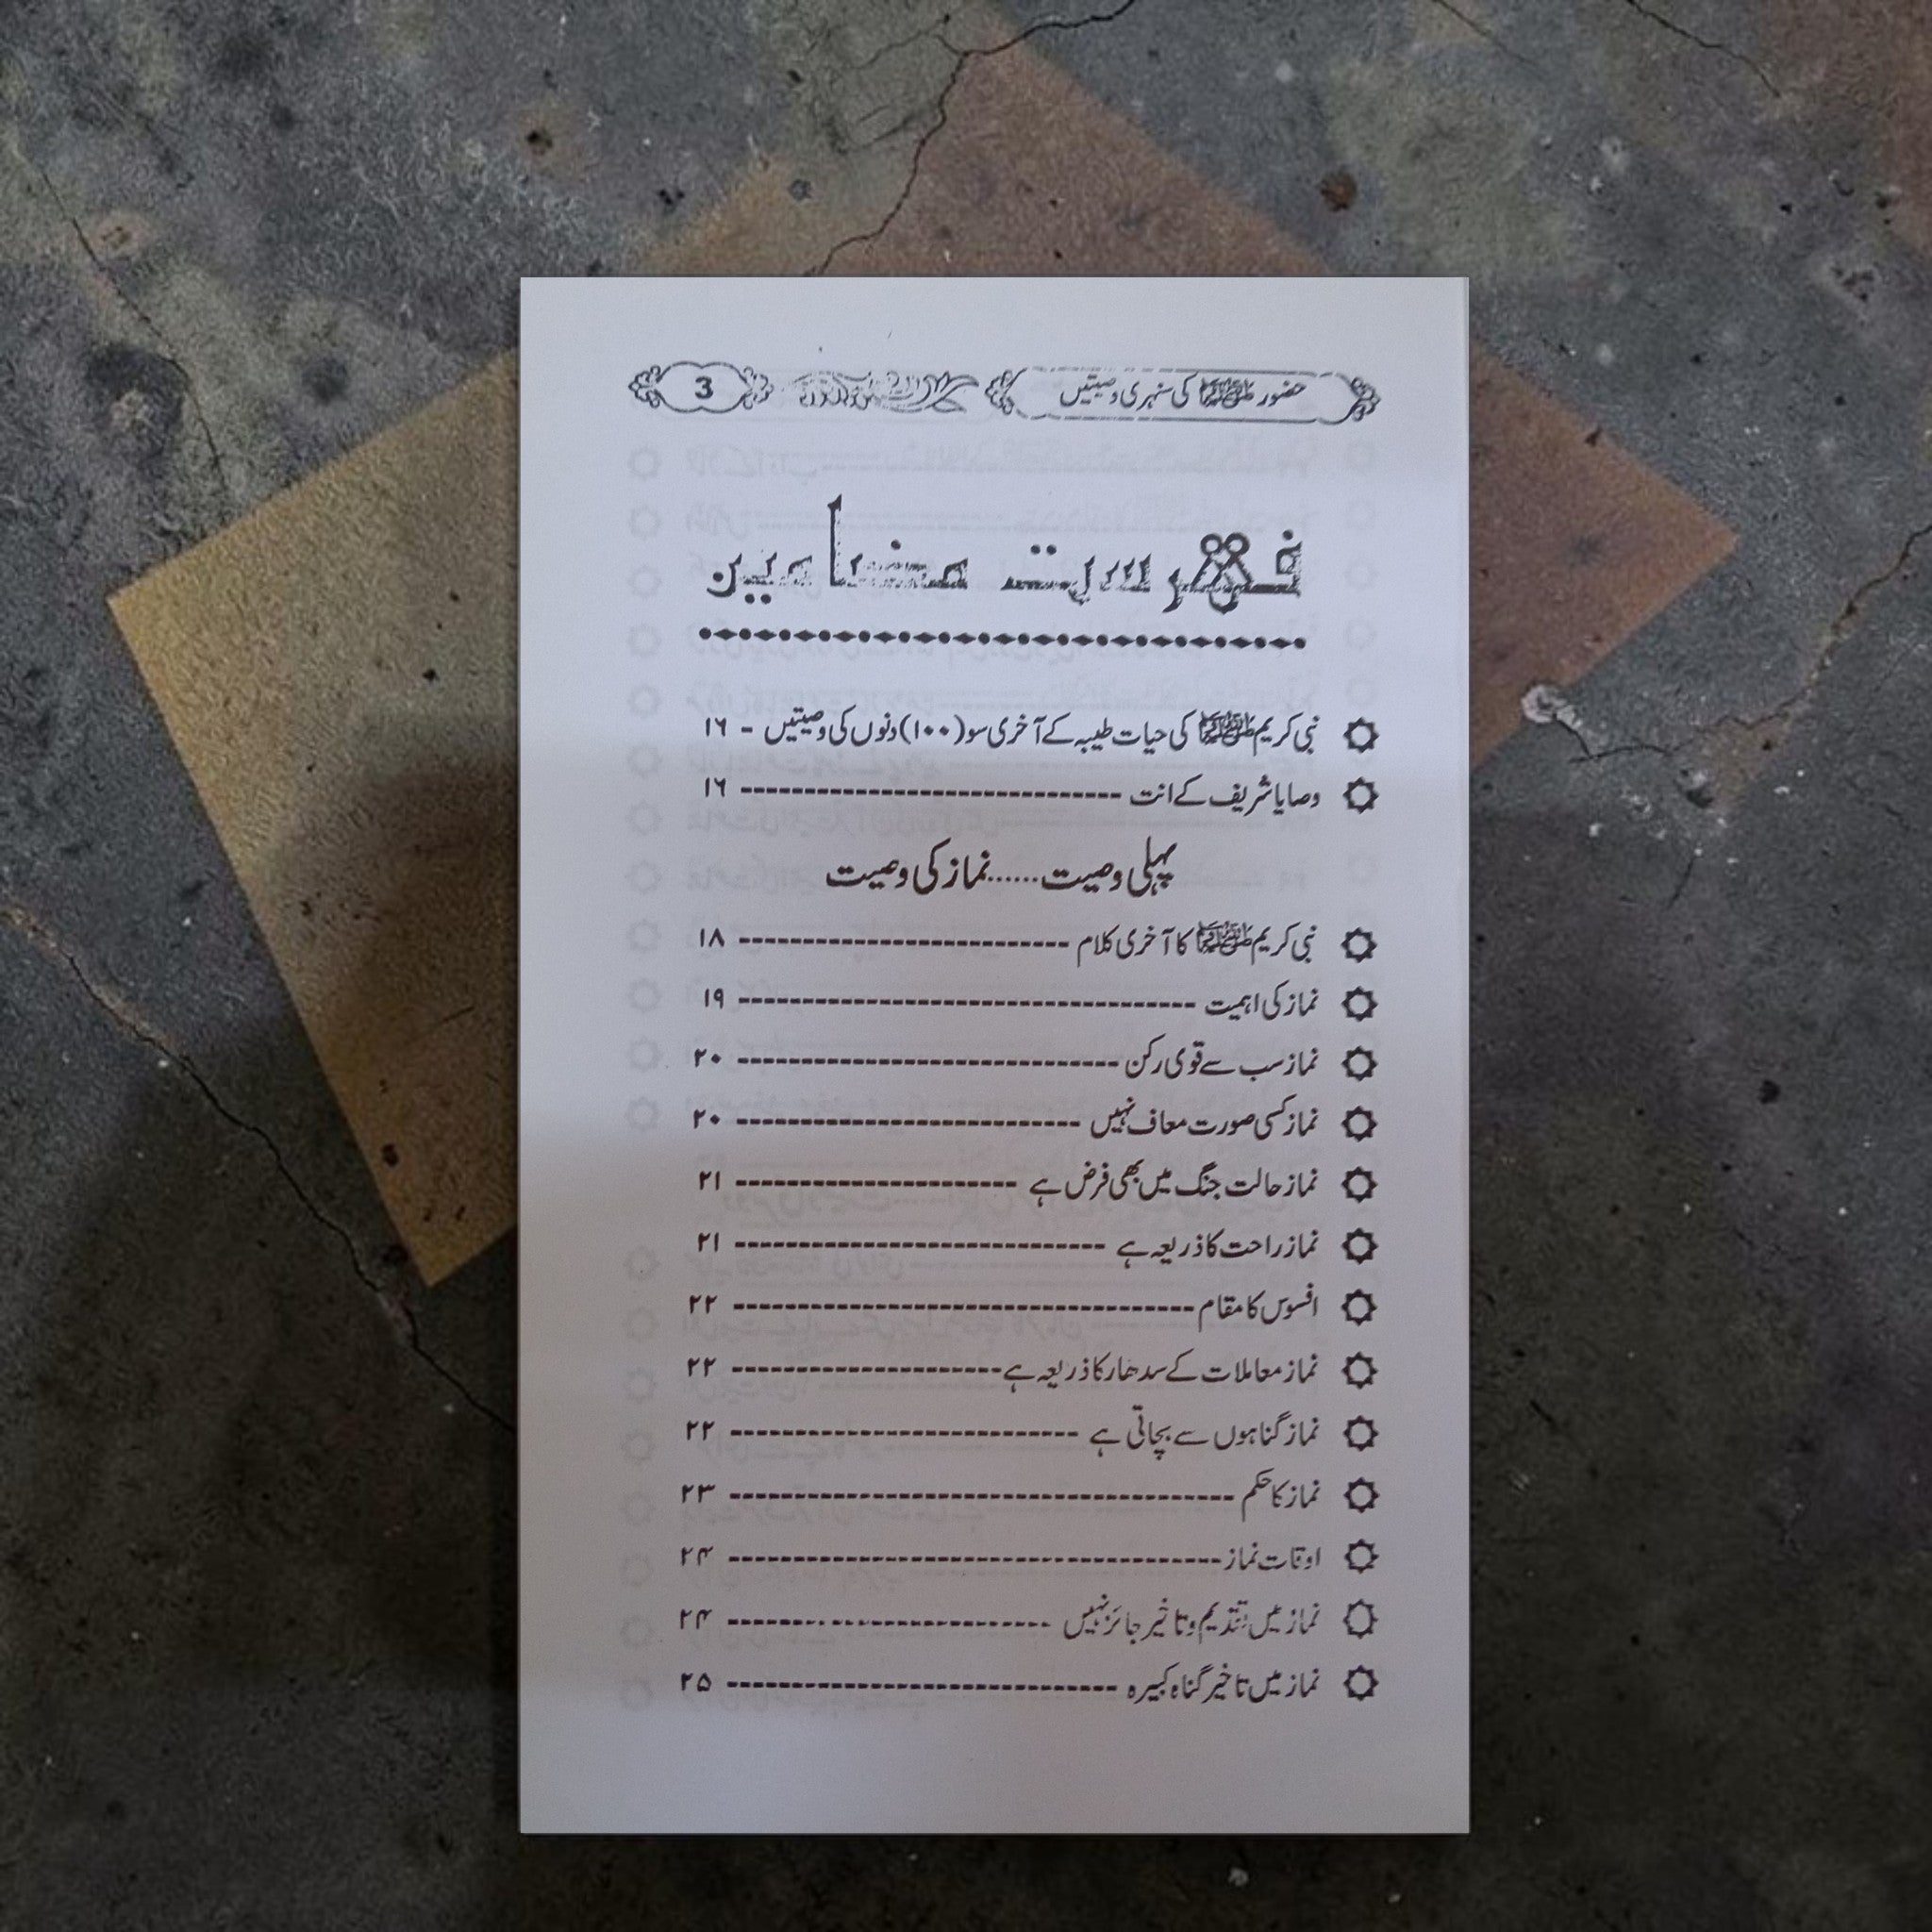 حضور ﷺ کی سنہری وصیتیں 3
فہرست مضامین
نبی کریم ﷺ کی حیات طیبہ کے آخری سو (۱۰۰) دنوں کی وصیتیں - ۱۶
وصایا شریف کے انت ------------------------------ ۱۶
پہلی وصیت......نماز کی وصیت
نبی کریم ﷺ کا آخری کلام -------------------------- ۱۸
نماز کی اہمیت ------------------------------------ ۱۹
نماز سب سے قوی رکن ------------------------------ ۲۰
نماز کسی صورت معاف نہیں --------------------------- ۲۰
نماز حالت جنگ میں بھی فرض ہے ---------------------- ۲۱
نماز راحت کا ذریعہ ہے ----------------------------- ۲۱
افسوس کا مقام ------------------------------------ ۲۲
نماز معاملات کے سدھار کا ذریعہ ہے --------------------- ۲۲
نماز گناہوں سے بچاتی ہے --------------------------- ۲۲
نماز کا حکم ---------------------------------------- ۲۳
اوقات نماز --------------------------------------- ۲۴
نماز میں تقدیم و تاخیر جائز نہیں ------------------------- ۲۴
نماز میں تاخیر گناہ کبیرہ ------------------------------- ۲۵